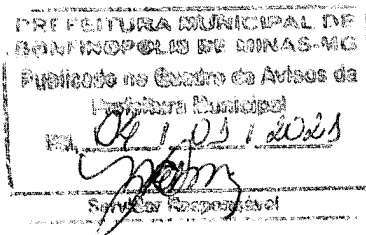 PREFEITURA MUNICIPAL DE
BONFINÓPOLIS DE MINAS-MG
Publicado no Quadro de Avisos da
Prefeitura Municipal
EM, 04 / 01 / 2021
Servidor Responsável